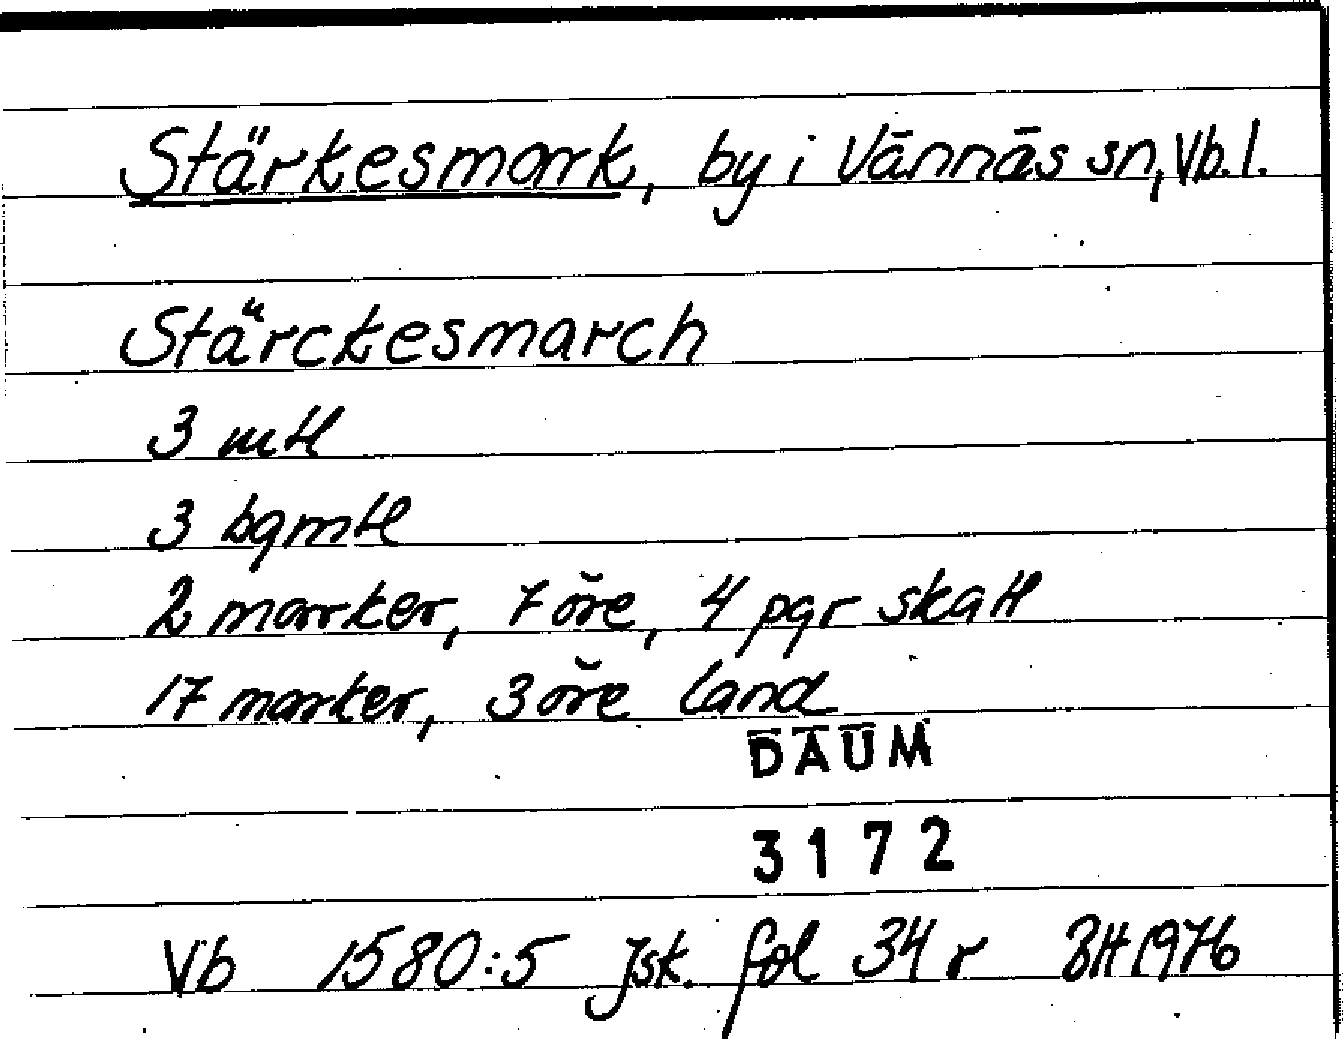 Stärkesmark, by i Vännäs sn, Vb. l.
Stärckesmarch
3 mtl
3 bgmtl
2 marker, 7 öre, 4 pgr skatt
17 marker, 3 öre land
DAUM
3172
Vb 1580:5 Jsk. fol 34 r BH 1976